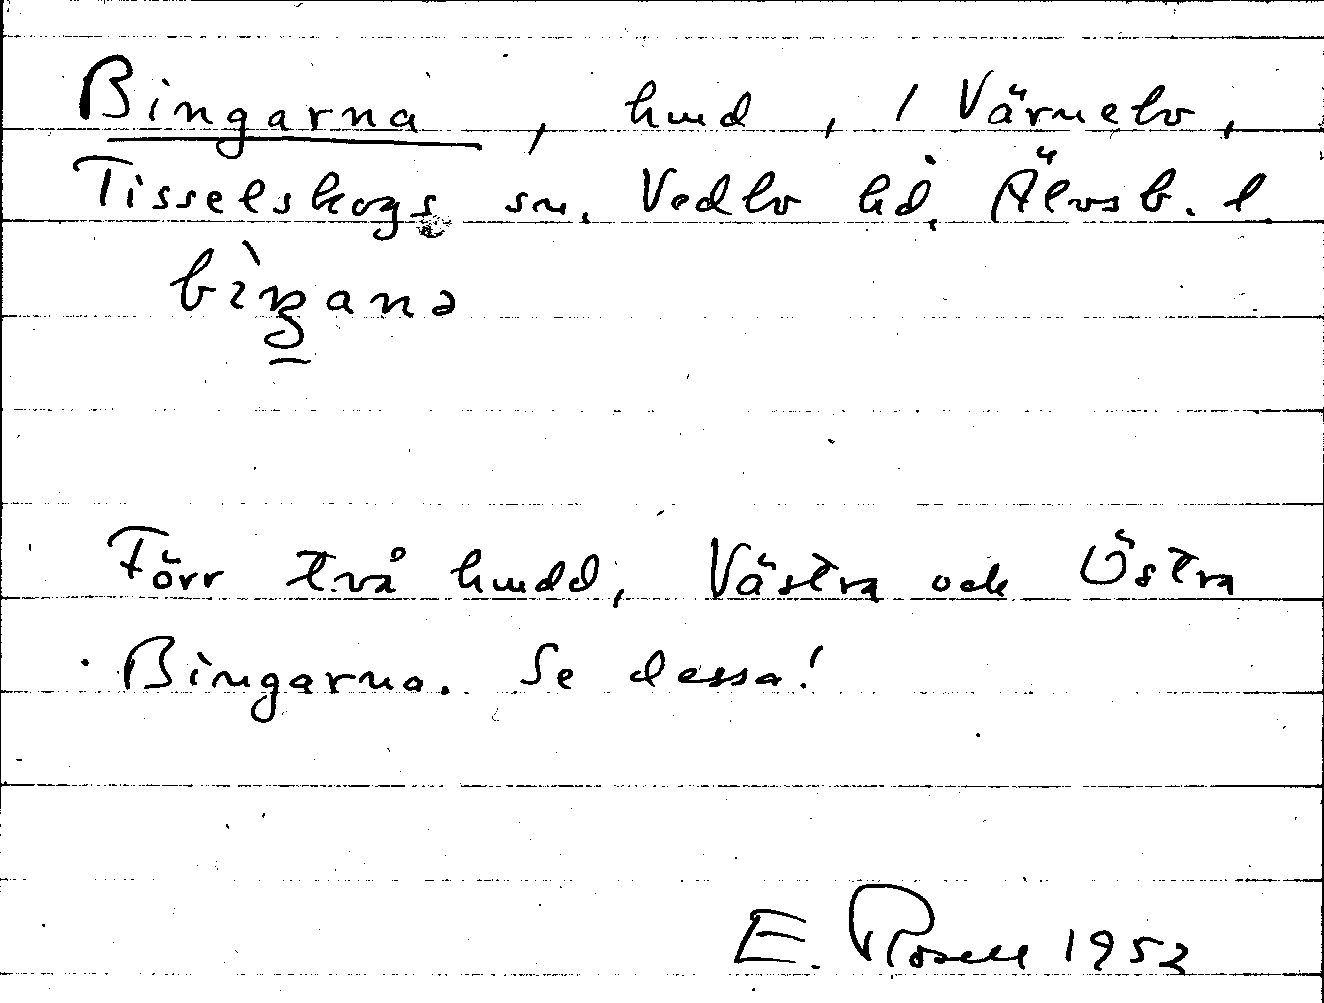 Bingarna, hmd, 1 Värmebo,
Tisselskogs sn. Vedbo hd. Älvsb. l.
Förr två hmdd, Västra och Östra
Bingarna. Se dessa!
E. Rosell 1952